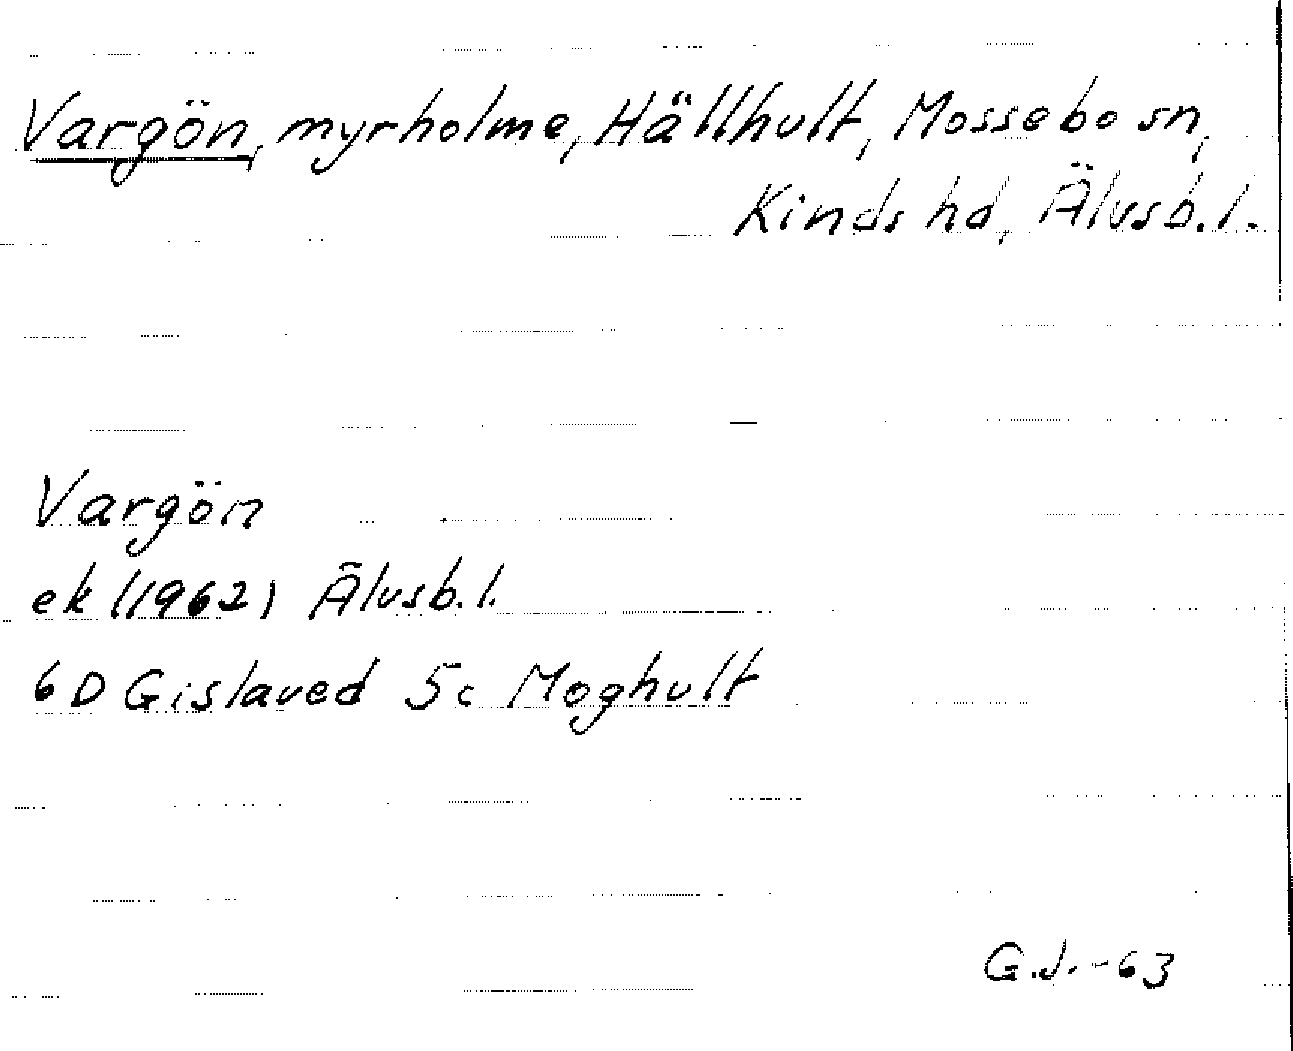 Vargön, myrholme, Hällhult, Mossebo sn,
Kinds hd, Älvsb. l.
Vargön
ek (1962) Älvsb. l.
6D Gislaved 5c Moghult
G.J. -63